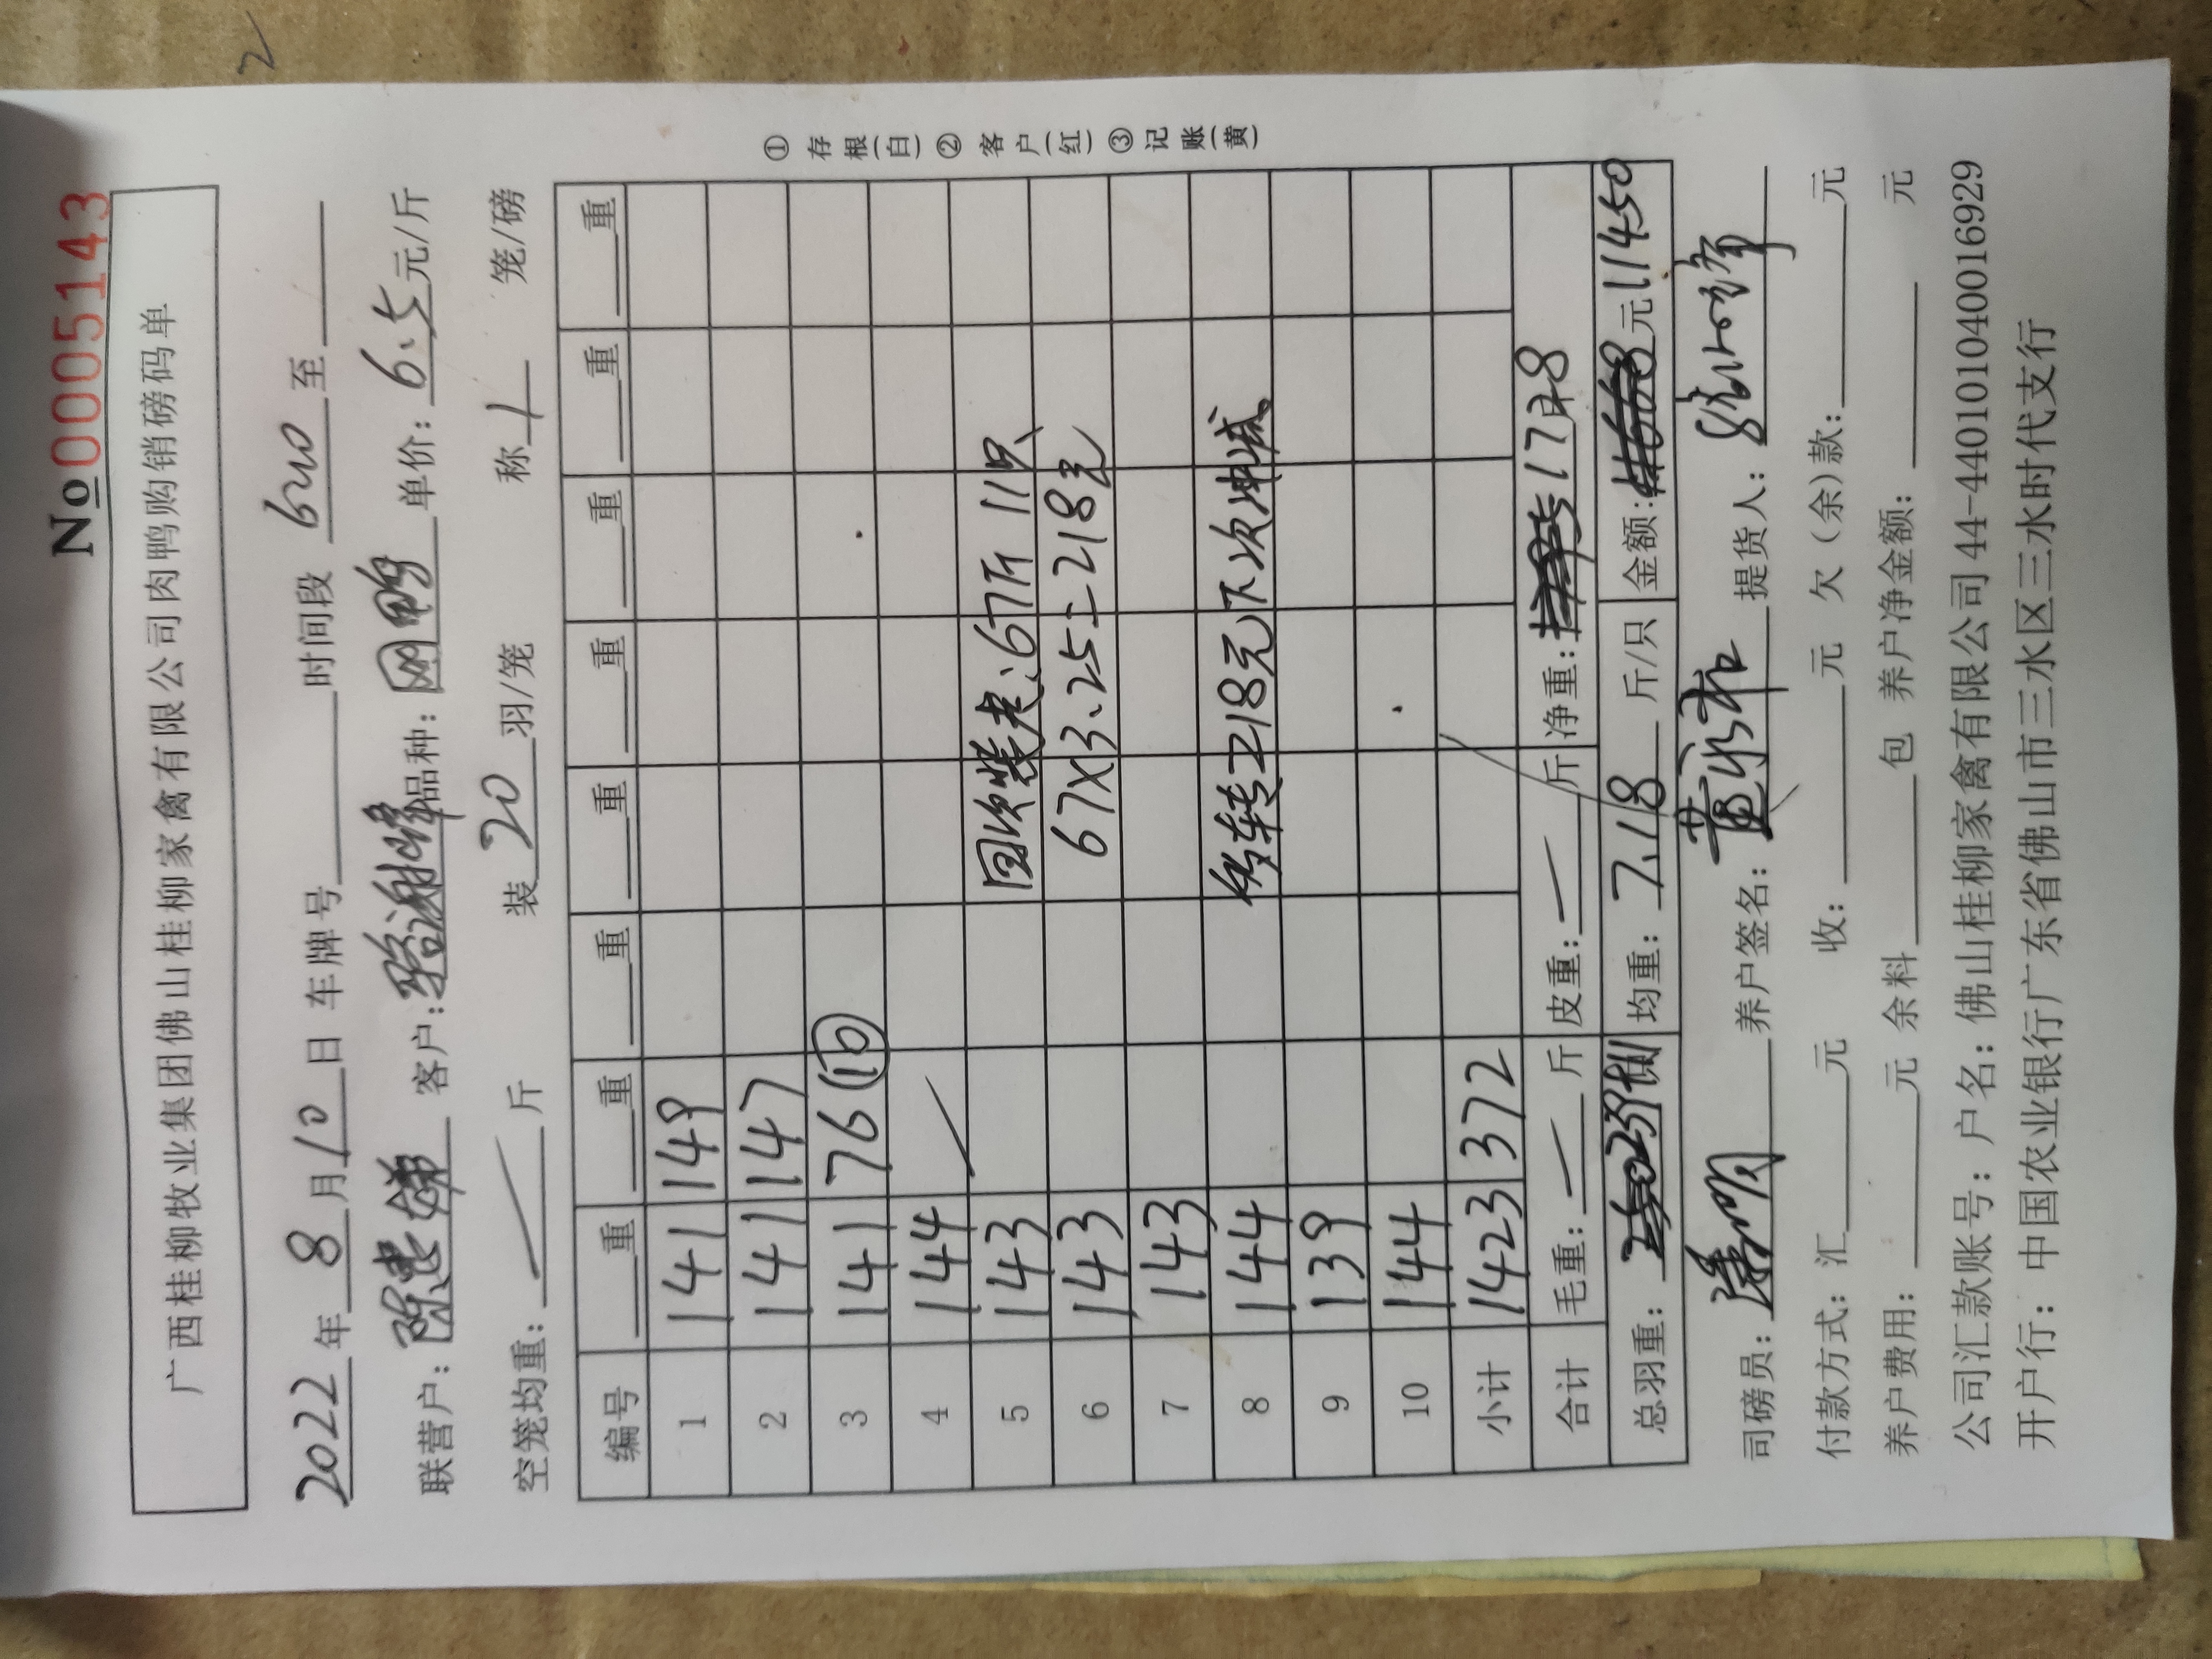 No 0005143
广西桂柳牧业集团佛山桂柳家禽有限公司肉鸭购销磅码单
2022年8月10日 车牌号 时间段 至
联营户: 陈 客户: 谢峰 品种: 鸭 单价: 6.5元/斤
空笼均重: 斤 装 20 羽/笼 称 1 笼/磅
编号 重 重 重 重 重 重 重 重
1 141 149
2 141 147
3 141 76 (10)
4 144
5 143 67斤 11只
6 143 67×3.25=218元
7 143
8 144 218元下次冲减
9 139
10 144
小计 1423 372
合计 毛重: 斤 皮重: 斤 净重: 1728
总羽重: 均重: 7.18 斤/只 金额: 元 11450
①存根(白)②客户(红)③记账(黄)
司磅员: 养户签名: 提货人:
付款方式: 汇 元 收: 元 欠(余)款: 元
养户费用: 元 余料 包 养户净金额: 元
公司汇款账号: 户名: 佛山桂柳家禽有限公司 44-440101040016929
开户行: 中国农业银行广东省佛山市三水区三水时代支行
2